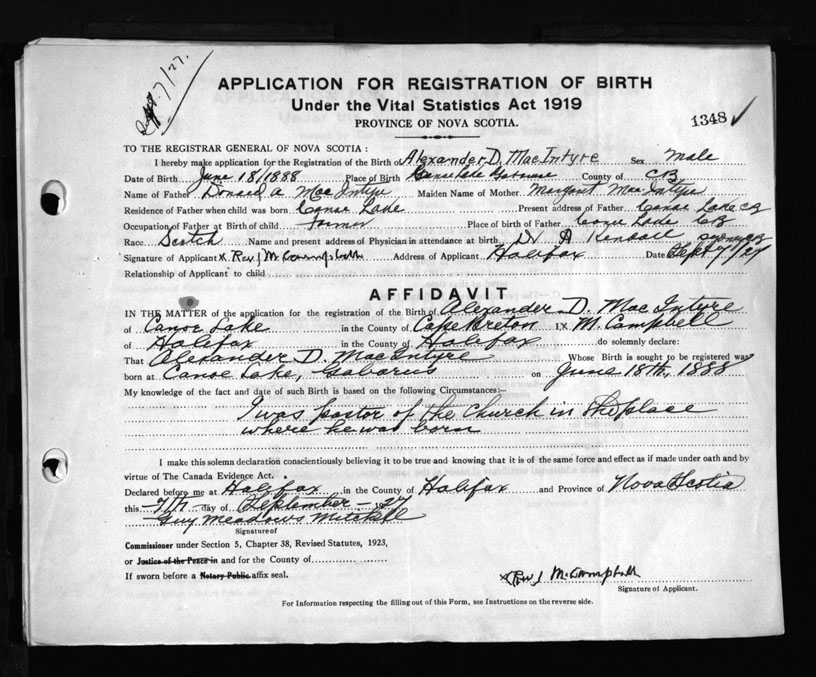 Sept. 7/27.
APPLICATION FOR REGISTRATION OF BIRTH
Under the Vital Statistics Act 1919
PROVINCE OF NOVA SCOTIA.
1348 ✓
TO THE REGISTRAR GENERAL OF NOVA SCOTIA :
I hereby make application for the Registration of the Birth of Alexander D. MacIntyre Sex Male
Date of Birth June 18/1888 Place of Birth Canoe Lake Gabarus County of CB
Name of Father Donald A MacIntyre Maiden Name of Mother Margaret MacIntyre
Residence of Father when child was born Canoe Lake Present address of Father Canoe Lake CB
Occupation of Father at Birth of child Farmer Place of birth of Father Canoe Lake CB
Race Scotch Name and present address of Physician in attendance at birth Dr A Kendall Sydney CB
Signature of Applicant x Rev J M Campbell Address of Applicant Halifax Date Sept 7/27
Relationship of Applicant to child
AFFIDAVIT
IN THE MATTER of the application for the registration of the Birth of Alexander D. MacIntyre
of Canoe Lake in the County of Cape Breton I X M. Campbell
of Halifax in the County of Halifax do solemnly declare:
That Alexander D. MacIntyre Whose Birth is sought to be registered was
born at Canoe Lake, Gabarus on June 18th, 1888
My knowledge of the fact and date of such Birth is based on the following Circumstances:—
I was pastor of the Church in the place
where he was born
I make this solemn declaration conscientiously believing it to be true and knowing that it is of the same force and effect as if made under oath and by
virtue of The Canada Evidence Act.
Declared before me at Halifax in the County of Halifax and Province of Nova Scotia
this 7th day of September 27
Guy Meadows Mitchell
Signature of
Commissioner under Section 5, Chapter 38, Revised Statutes, 1923,
or Justice of the Peace in and for the County of
If sworn before a Notary Public affix seal.
x Rev J M Campbell
Signature of Applicant.
For Information respecting the filling out of this Form, see Instructions on the reverse side.